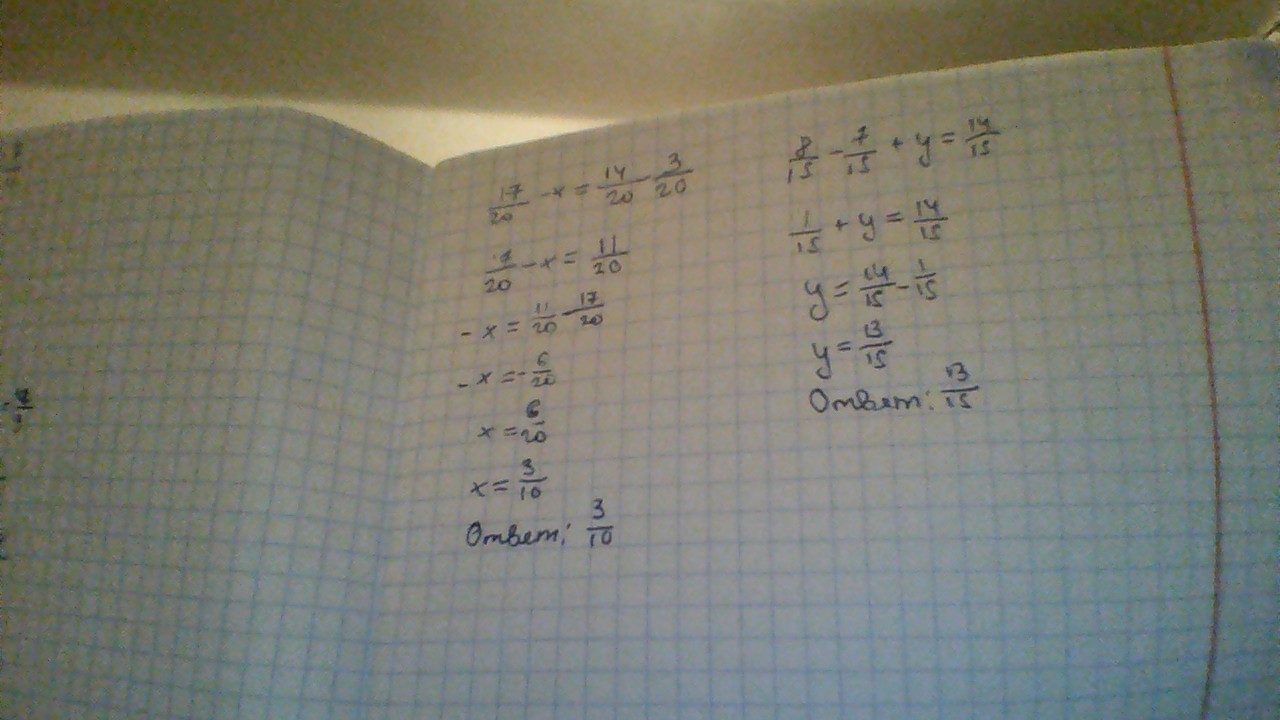 17/20 - x = 14/20 - 3/20
17/20 - x = 11/20
- x = 11/20 - 17/20
- x = - 6/20
x = 6/20
x = 3/10
Ответ: 3/10
8/15 - 7/15 + y = 14/15
1/15 + y = 14/15
y = 14/15 - 1/15
y = 13/15
Ответ: 13/15